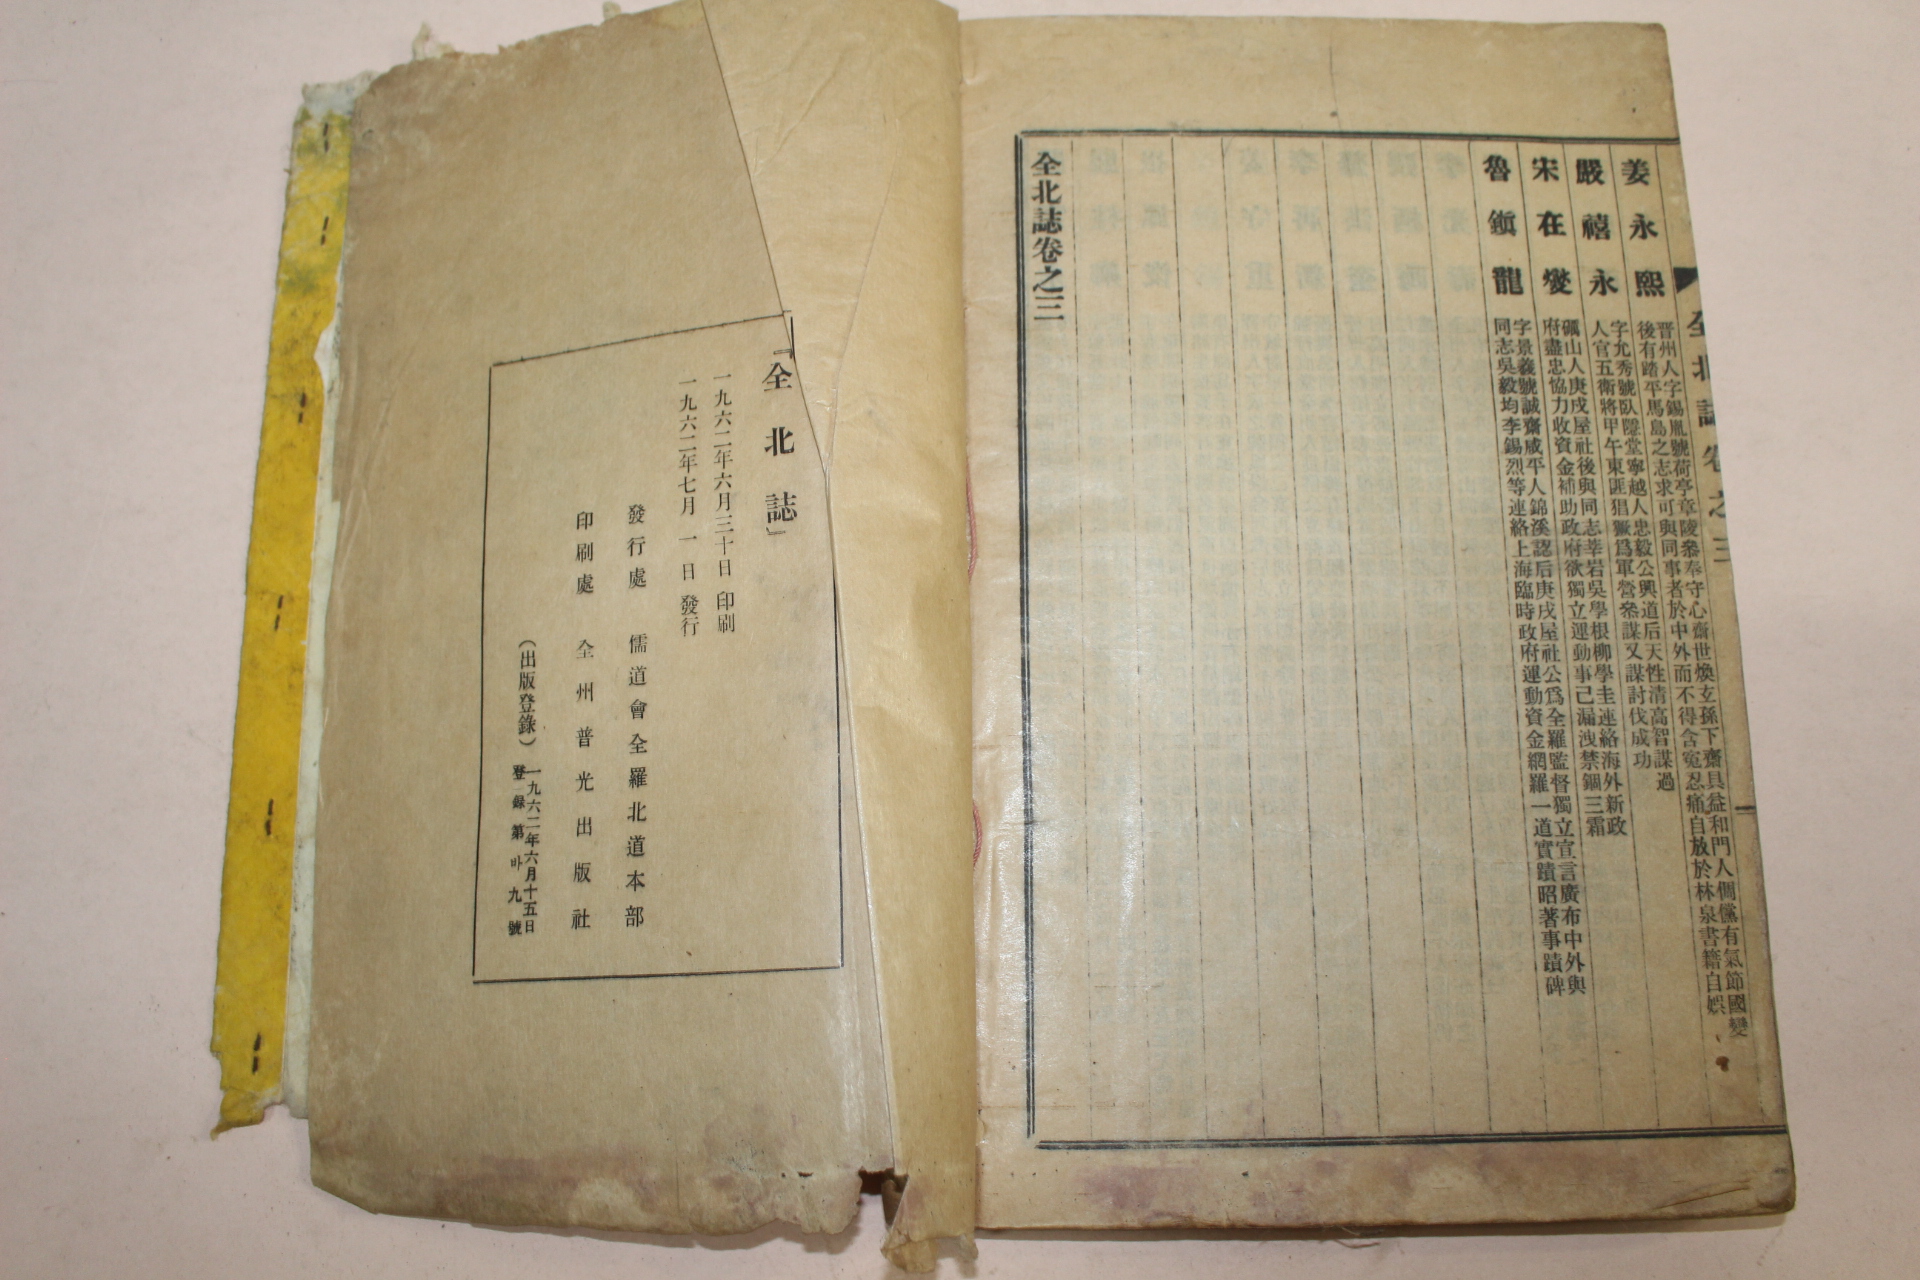 全北誌卷之三
姜永熙
晋州人字錫胤號荷亭章陵參奉守心齋世煥玄孫下齋具益和門人倜儻有氣節國變
後有踏平馬島之志求可與同事者於中外而不得含寃忍痛自放於林泉書籍自娛
嚴禧永
字允秀號臥隱堂寧越人忠毅公興道后天性清高智謀過
人官五衛將甲午東匪猖獗爲軍營參謀又謀討伐成功
宋在燮
礪山人庚戌屋社後與同志莘岩吳學根柳學圭連絡海外新政
府盡忠協力收資金補助政府欲獨立運動事己漏洩禁錮三霜
魯鎭龍
字景義號誠齋咸平人錦溪認后庚戌屋社公爲全羅監督獨立宣言廣布中外與
同志吳毅均李錫烈等連絡上海臨時政府運動資金網羅一道實蹟昭著事蹟碑
全北誌卷之三
『全北誌』
一九六二年六月三十日 印刷
一九六二年七月 一 日 發行
發行處 儒道會全羅北道本部
印刷處 全州普光出版社
(出版登錄) 一九六二年六月十五日
登錄 第 마 九 號